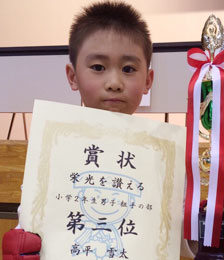 賞状
栄光を讃える
小学2年生男子組手の部
第三位
高平 雪太